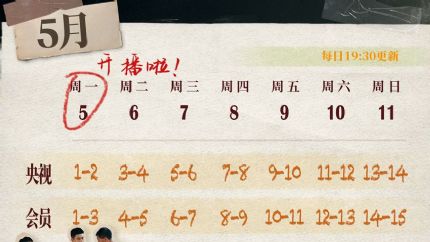 5月
开播啦!
每日19:30更新
周一 周二 周三 周四 周五 周六 周日
5 6 7 8 9 10 11
央视 1-2 3-4 5-6 7-8 9-10 11-12 13-14
会员 1-3 4-5 6-7 8-9 10-11 12-13 14-15